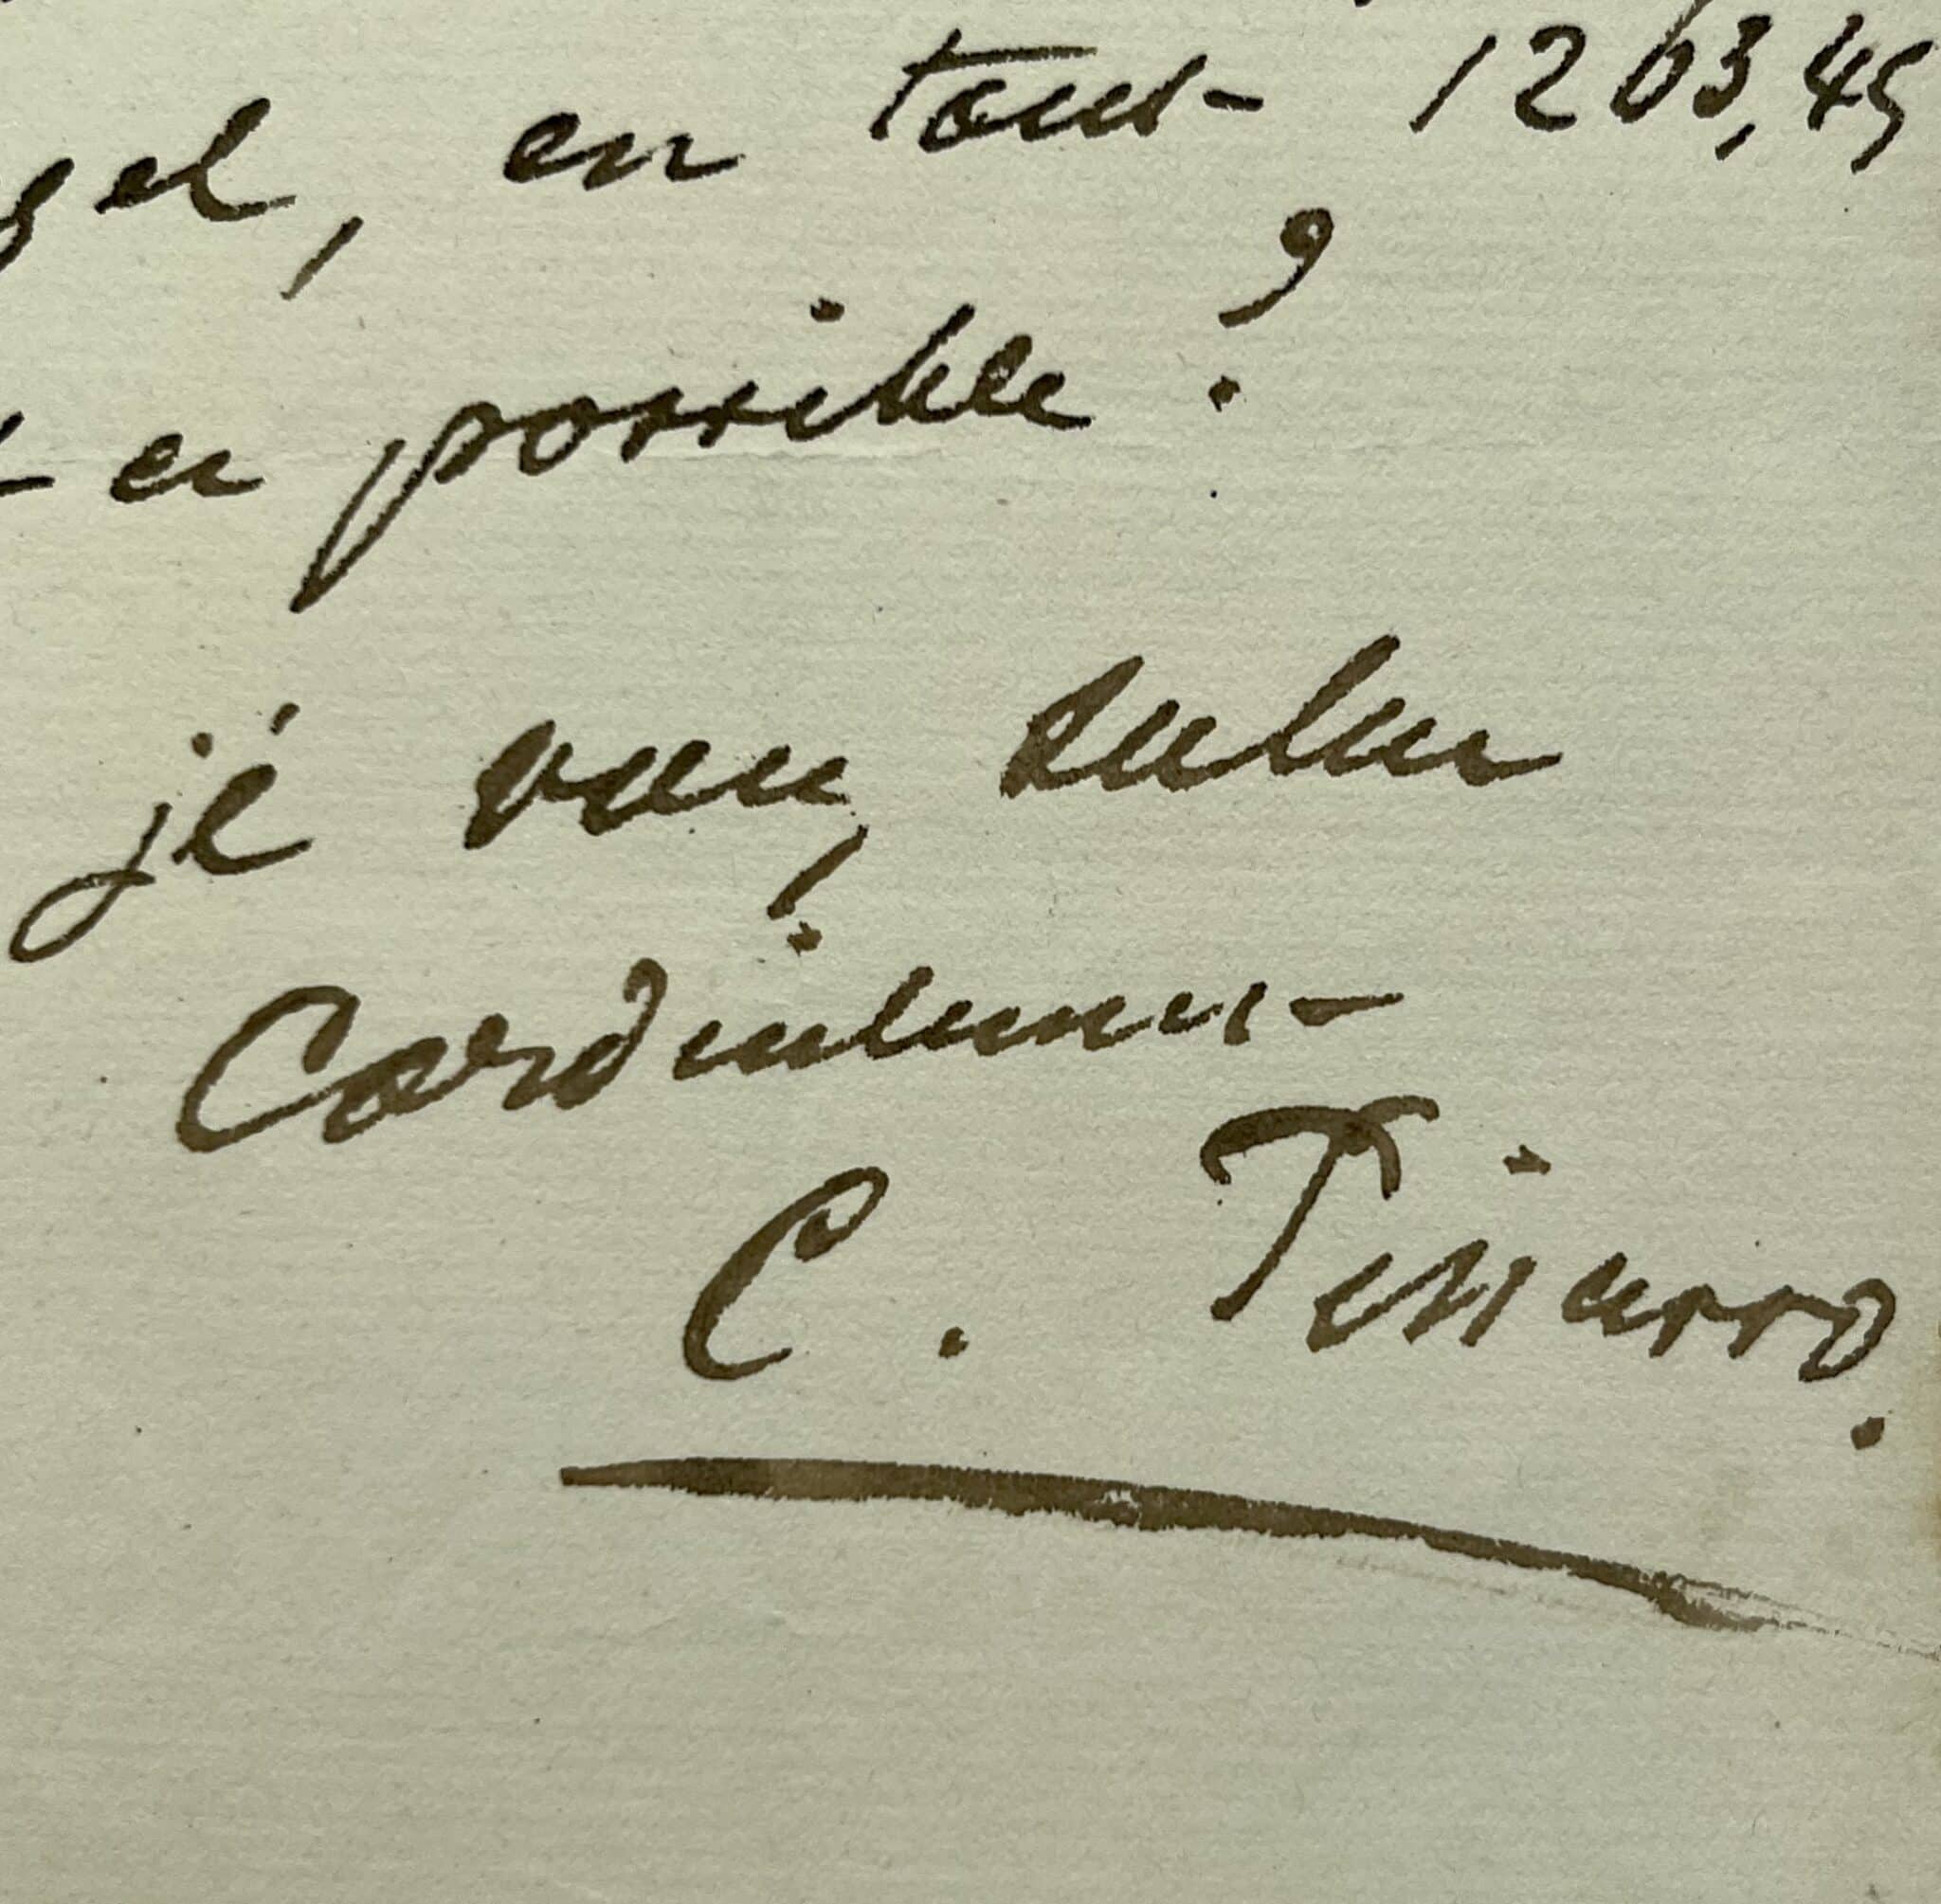 gel, en tout 1263,45
en possible ?
je vous salue
Cordialement
C. Pissarro.